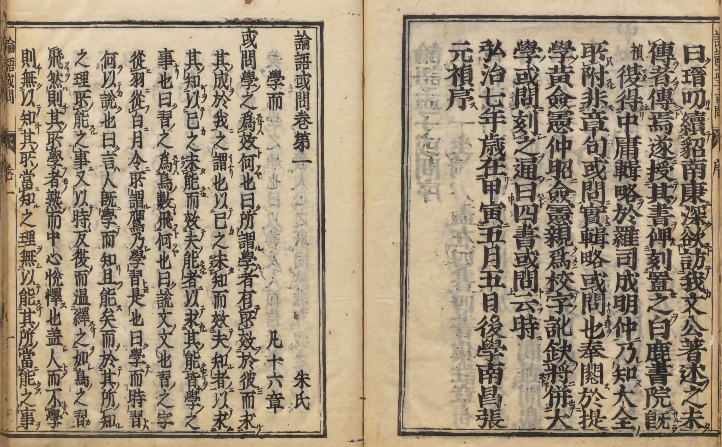 曰瑨叨續貂南康深欲訪我文公著述之未
傳者傳焉遂授其書俾刻置之白鹿書院既
禎獲得中庸輯略於羅司成明仲乃知大全
所附非章句或問實輯略或問也奉閱於提
學黃僉憲仲昭僉憲親爲校字訛欽將併大
學或問刻之通曰四書或問云時
弘治七年歲在甲寅五月五日後學南昌張
元禎序
論語或問卷第一
朱氏
學而 凡十六章
或問學之爲效何也曰所謂學者有所效於彼而求
其成於我之謂也以己之未知而效夫知者以求
其知以己之未能而效夫能者以求其能皆學之
事也曰習之爲鳥數飛何也曰說文文也習之字
從羽從白月令所謂鷹乃學習是也曰學而時習
何以說也曰言人既學而知且能矣而於其所知
之理所能之事又以時反復而溫繹之如鳥之習
飛然則其所學者熟而中心悅懌也蓋人而不學
則無以知其所當知之理無以能其所當能之事
論語或問 卷一